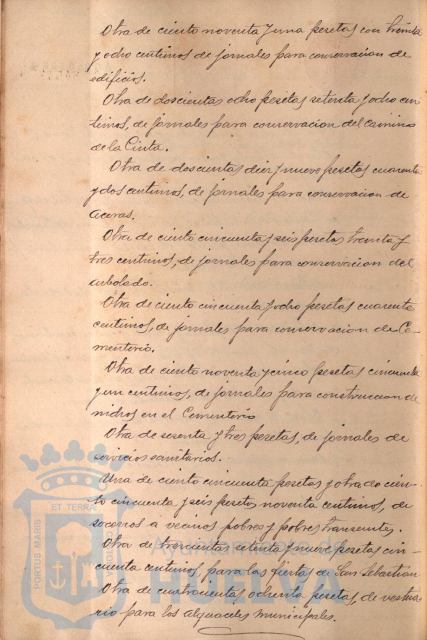 Otra de ciento noventa y una pesetas con treinta
y ocho centimos de jornales para conservacion de
edificios.
Otra de doscientas ocho pesetas setenta y ocho cen-
timos, de jornales para conservacion del camino
de la Cinta.
Otra de doscientas diez y nueve pesetas cuarenta
y dos centimos, de jornales para conservacion de
aceras.
Otra de ciento cincuenta y seis pesetas treinta y
tres centimos, de jornales para conservacion del
arbolado.
Otra de ciento cincuenta y ocho pesetas cuarenta
centimos, de jornales para conservacion de Ce-
menterio.
Otra de ciento noventa y cinco pesetas cincuenta
y un centimos, de jornales para construccion de
nichos en el Cementerio
Otra de sesenta y tres pesetas, de jornales de
servicios sanitarios.
Una de ciento cincuenta pesetas y otra de cien-
to cincuenta y seis pesetas noventa centimos, de
socorros a vecinos pobres y pobres transeuntes.
Otra de trescientas setenta y nueve pesetas cin-
cuenta centimos, para las fiestas de San Sebastian
Otra de cuatrocientas ochenta pesetas, de vestua-
rio para los alguaciles municipales.
PORTUS MARIS ET TERRA
Ayuntamiento de
HUELVA